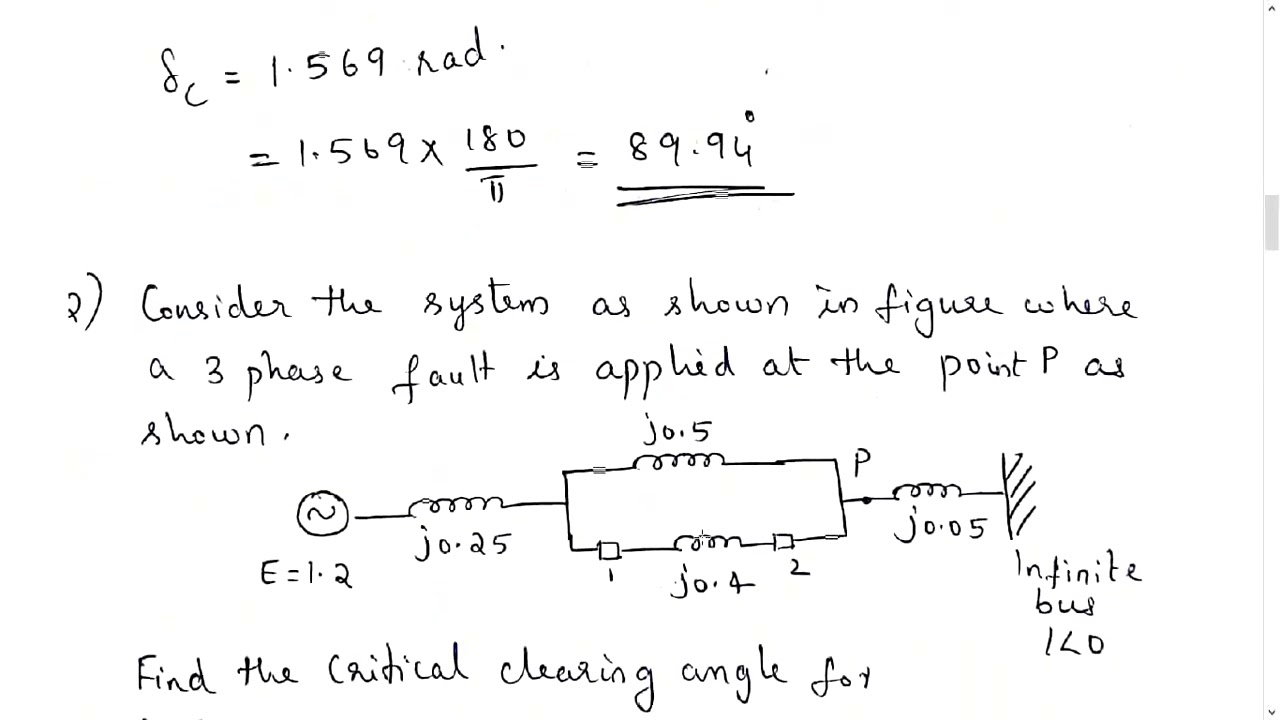 δc = 1.569 rad.
= 1.569 × 180/π = 89.94°
2) Consider the system as shown in figure where
a 3 phase fault is applied at the point P as
shown.
j0.5
P
j0.25
j0.05
E = 1.2
1
j0.4
2
Infinite
bus
1∠0
Find the critical clearing angle for